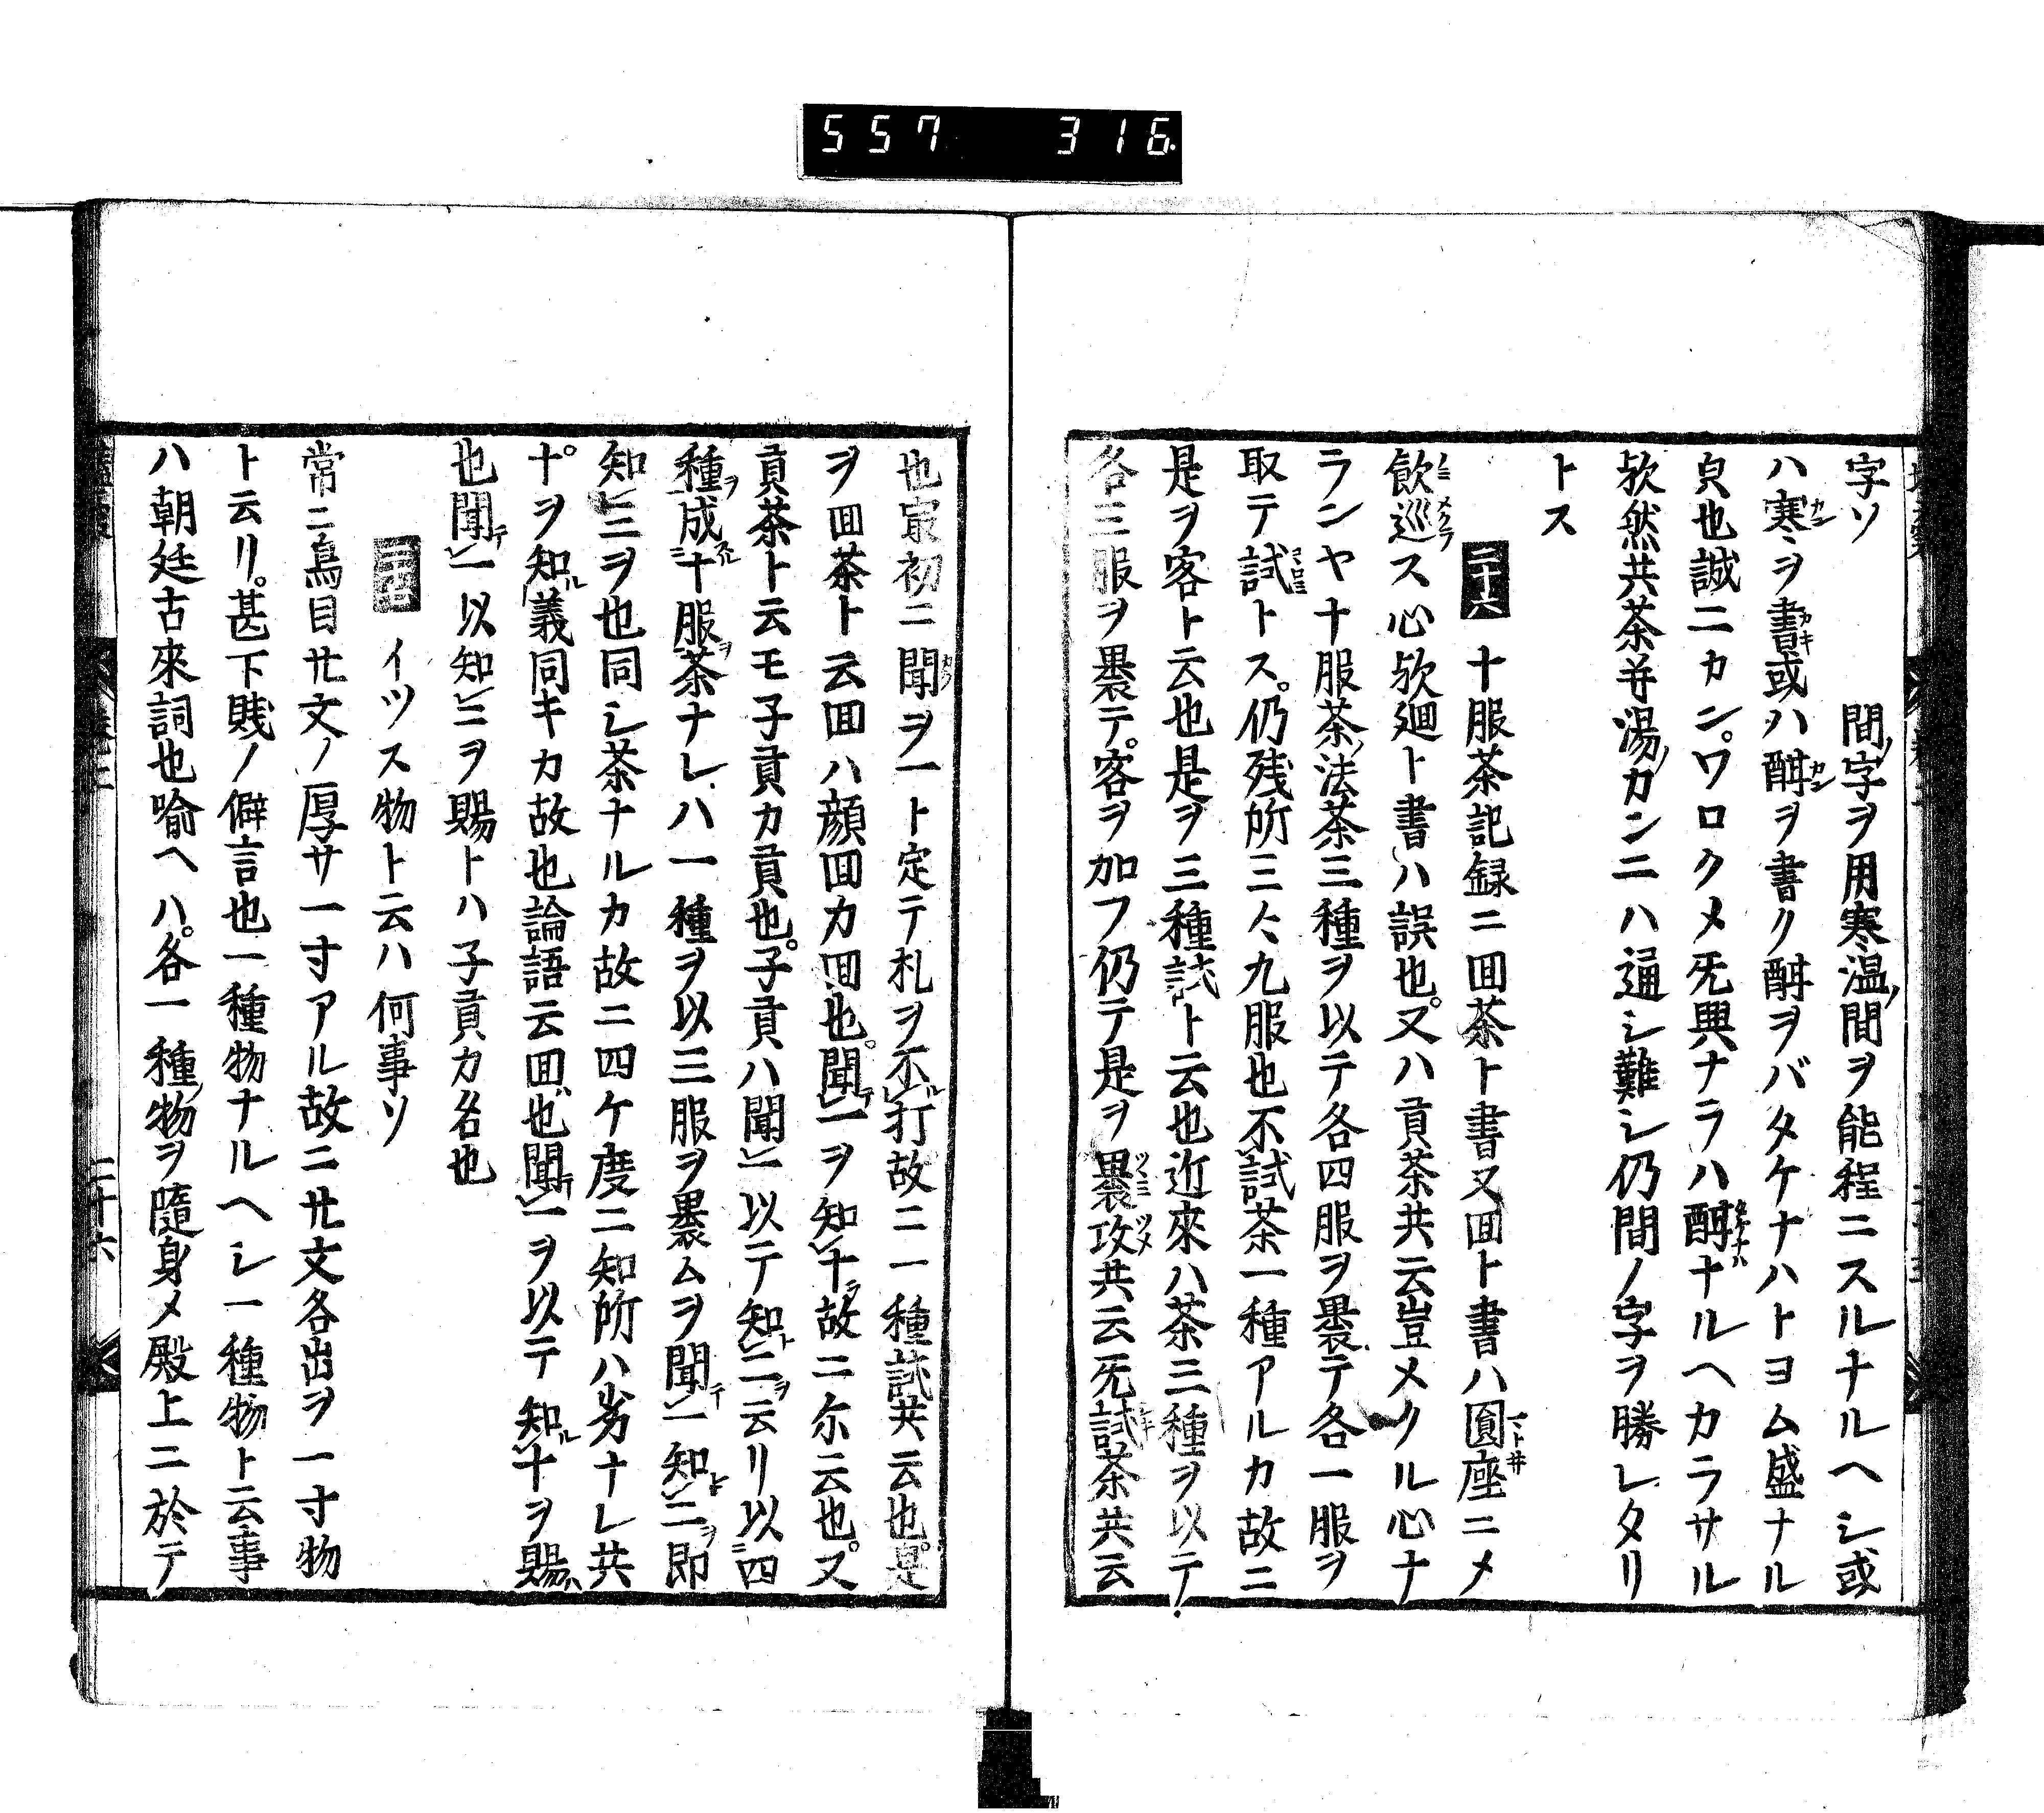 557 316
字ソ 間ノ字ヲ用寒温ノ間ヲ能程ニスルナルヘシ或
ハ寒ヲ書或ハ酣ヲ書ク酣ヲバタケナハトヨム盛ナル
皃也誠ニカン。ワロクメ旡興ナラハ酣ナルヘカラサル
欤然共茶并湯ノカンニハ通シ難シ仍間ノ字ヲ勝レタリ
トス
二十六 十服茶記録ニ回茶ト書又回ト書ハ圓座ニメ
飲巡ス心欤廻ト書ハ誤也。又ハ貢茶共云豈メクル心ナ
ランヤ十服茶ノ法茶三種ヲ以テ各四服ヲ褁テ各一服ヲ
取テ試トス。仍残所三々九服也不試茶一種アルカ故ニ
是ヲ客ト云也是ヲ三種試ト云也近來ハ茶三種ヲ以テ
各三服ヲ褁テ。客ヲ加フ仍テ是ヲ褁攻共云旡試茶共云
也冣初ニ聞ヲ一ト定テ札ヲ不打故ニ一種試共云也。是
ヲ回茶ト云回ハ顔回カ回也。聞一ヲ知十故ニ尓云也。又
貢茶ト云モ子貢カ貢也。子貢ハ聞一以テ知二云リ以四
種成十服茶ナレハ一種ヲ以三服ヲ褁ムヲ聞一知二即
知二ヲ也同シ茶ナルカ故ニ四ケ度ニ知所ハ劣ナレ共
十ヲ知義同キカ故也論語云回也聞一ヲ以テ知十ヲ賜
也聞一以知二ヲ賜トハ子貢カ名也
イツス物ト云ハ何事ソ
常ニ鳥目廿文ノ厚サ一寸アル故ニ廿文各出ヲ一寸物
ト云リ。甚下賎ノ僻言也一種物ナルヘシ一種物ト云事
ハ朝廷古來詞也喩ヘハ。各一種ノ物ヲ隨身メ殿上ニ於テ
二十六